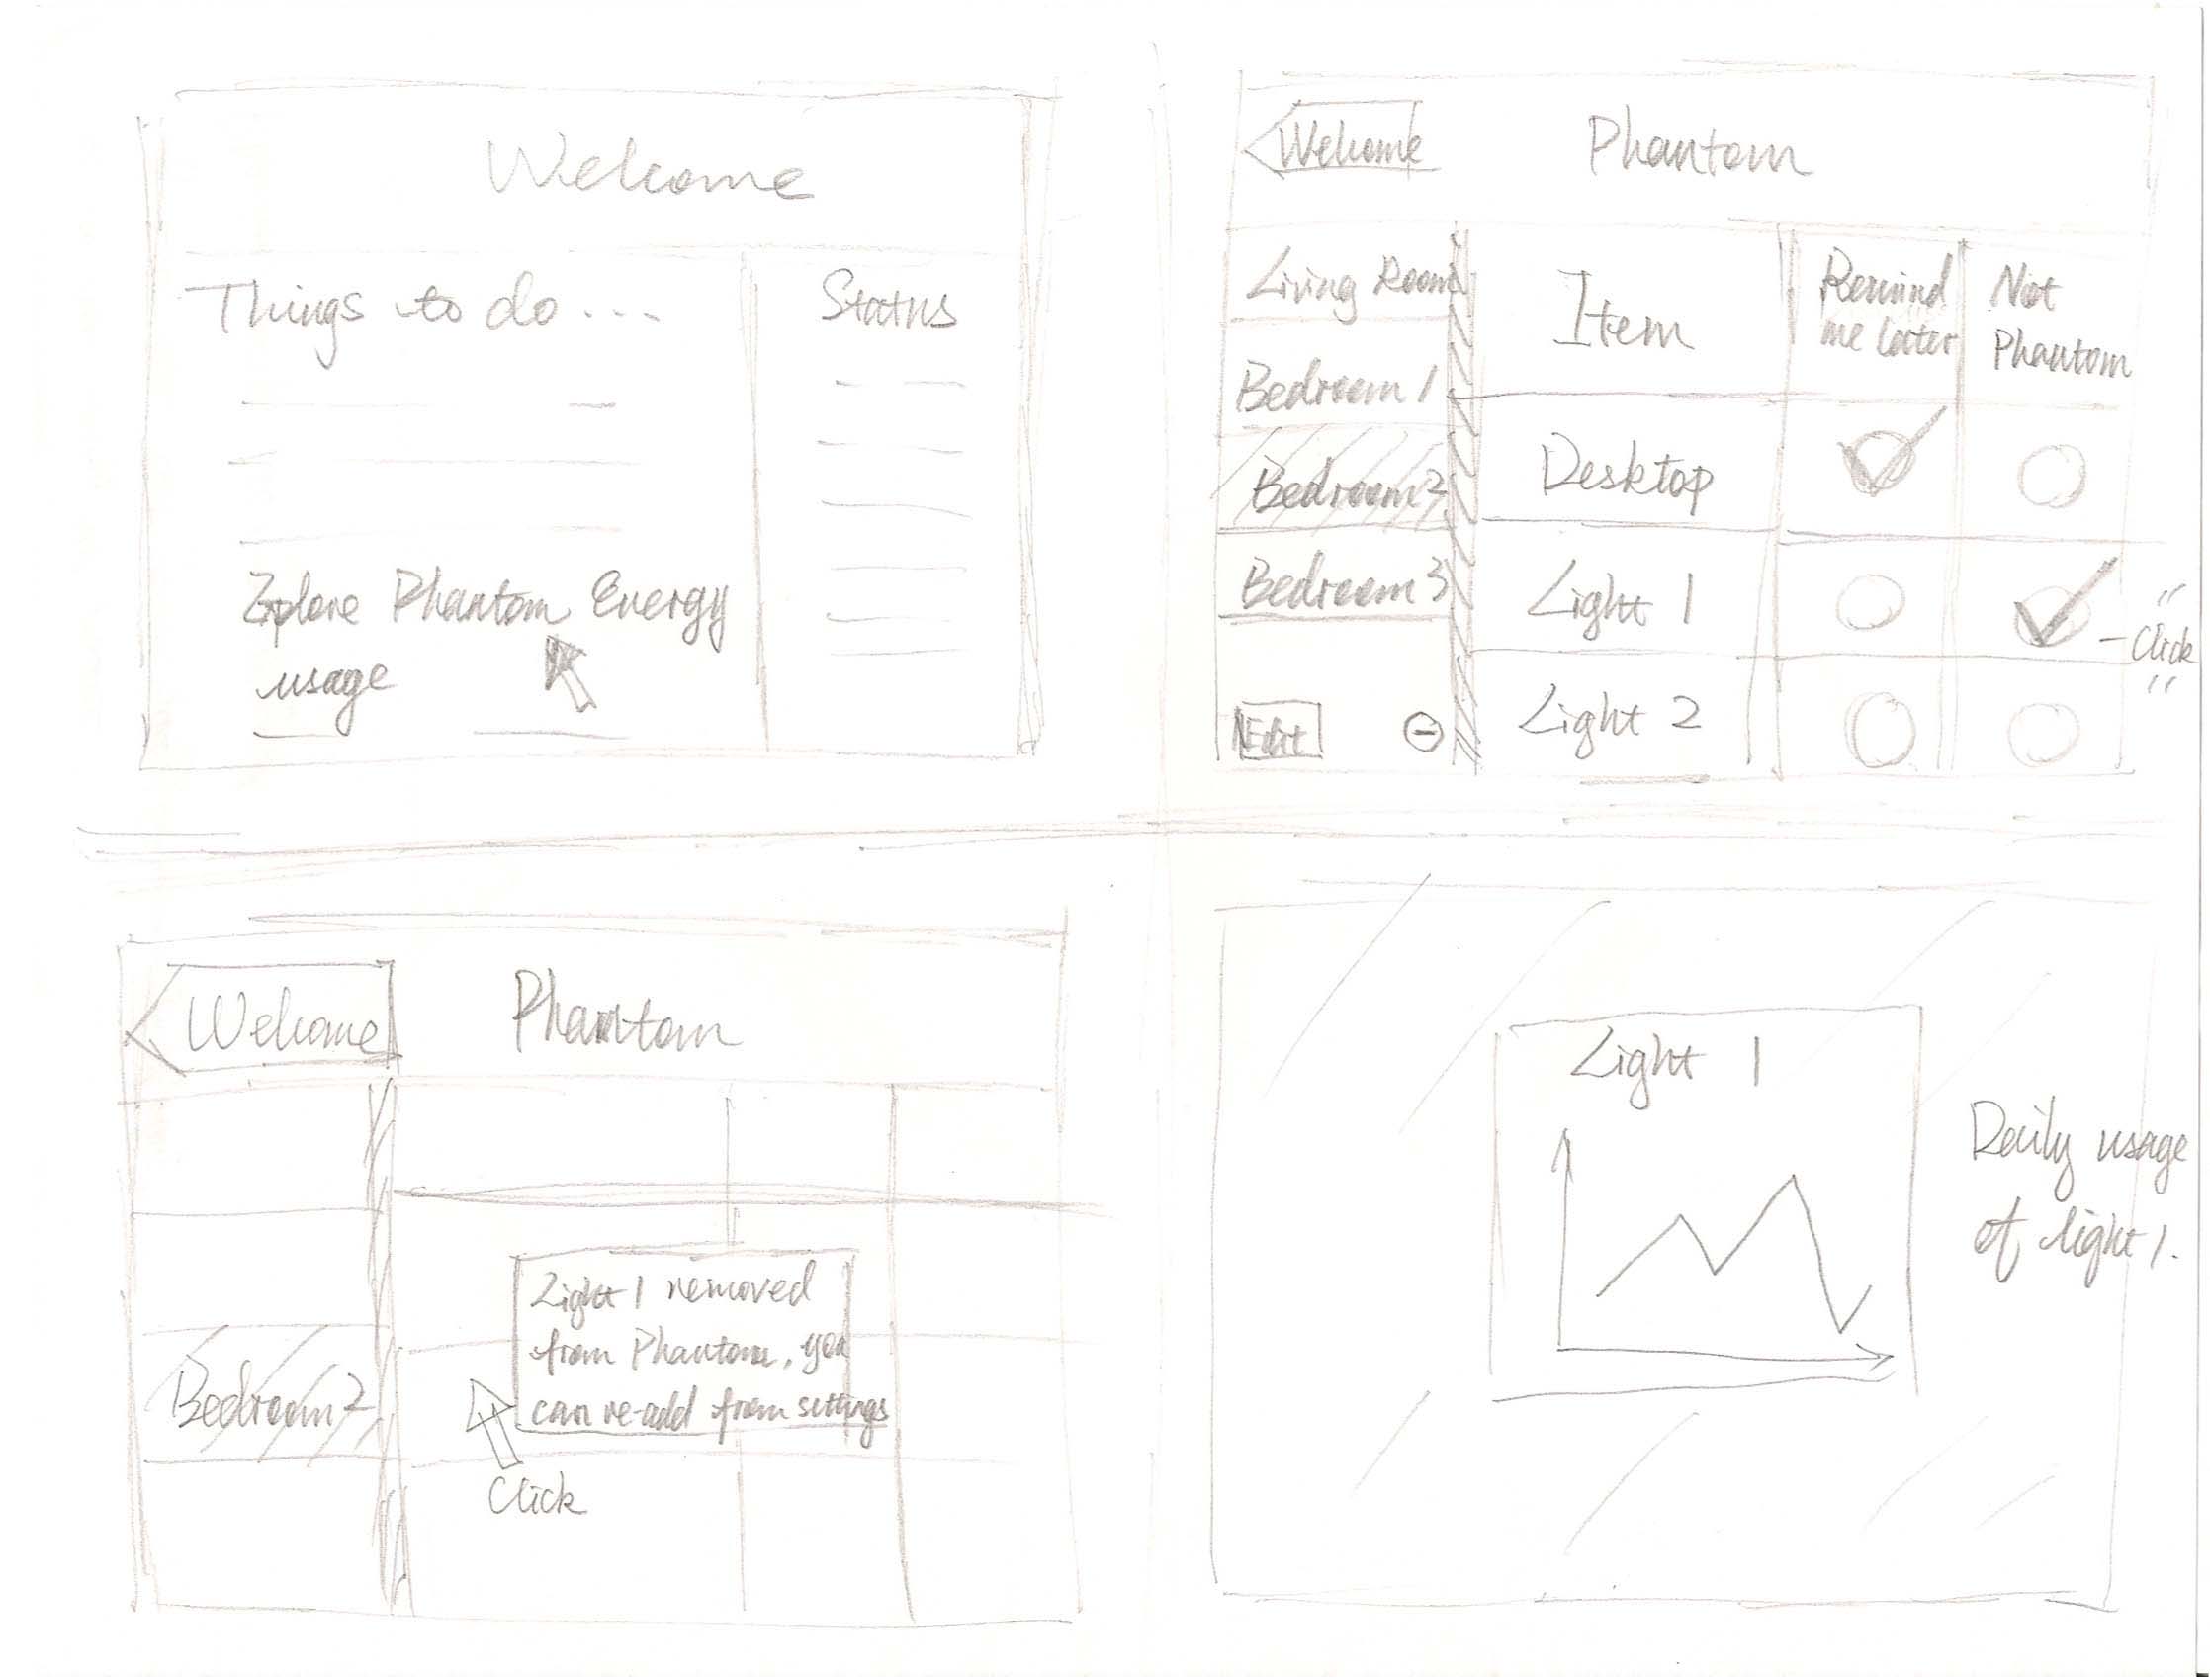 Welcome
Things to do ...
Status
Explore Phantom Energy
usage
Welcome
Phantom
Living Room
Bedroom 1
Bedroom 2
Bedroom 3
Edit
Item
Remind
me later
Not
Phantom
Desktop
Light 1
"
- Click
"
Light 2
Welcome
Phantom
Bedroom 2
Light 1 removed
from Phantom, you
can re-add from settings
Click
Light 1
Daily usage
of light 1.